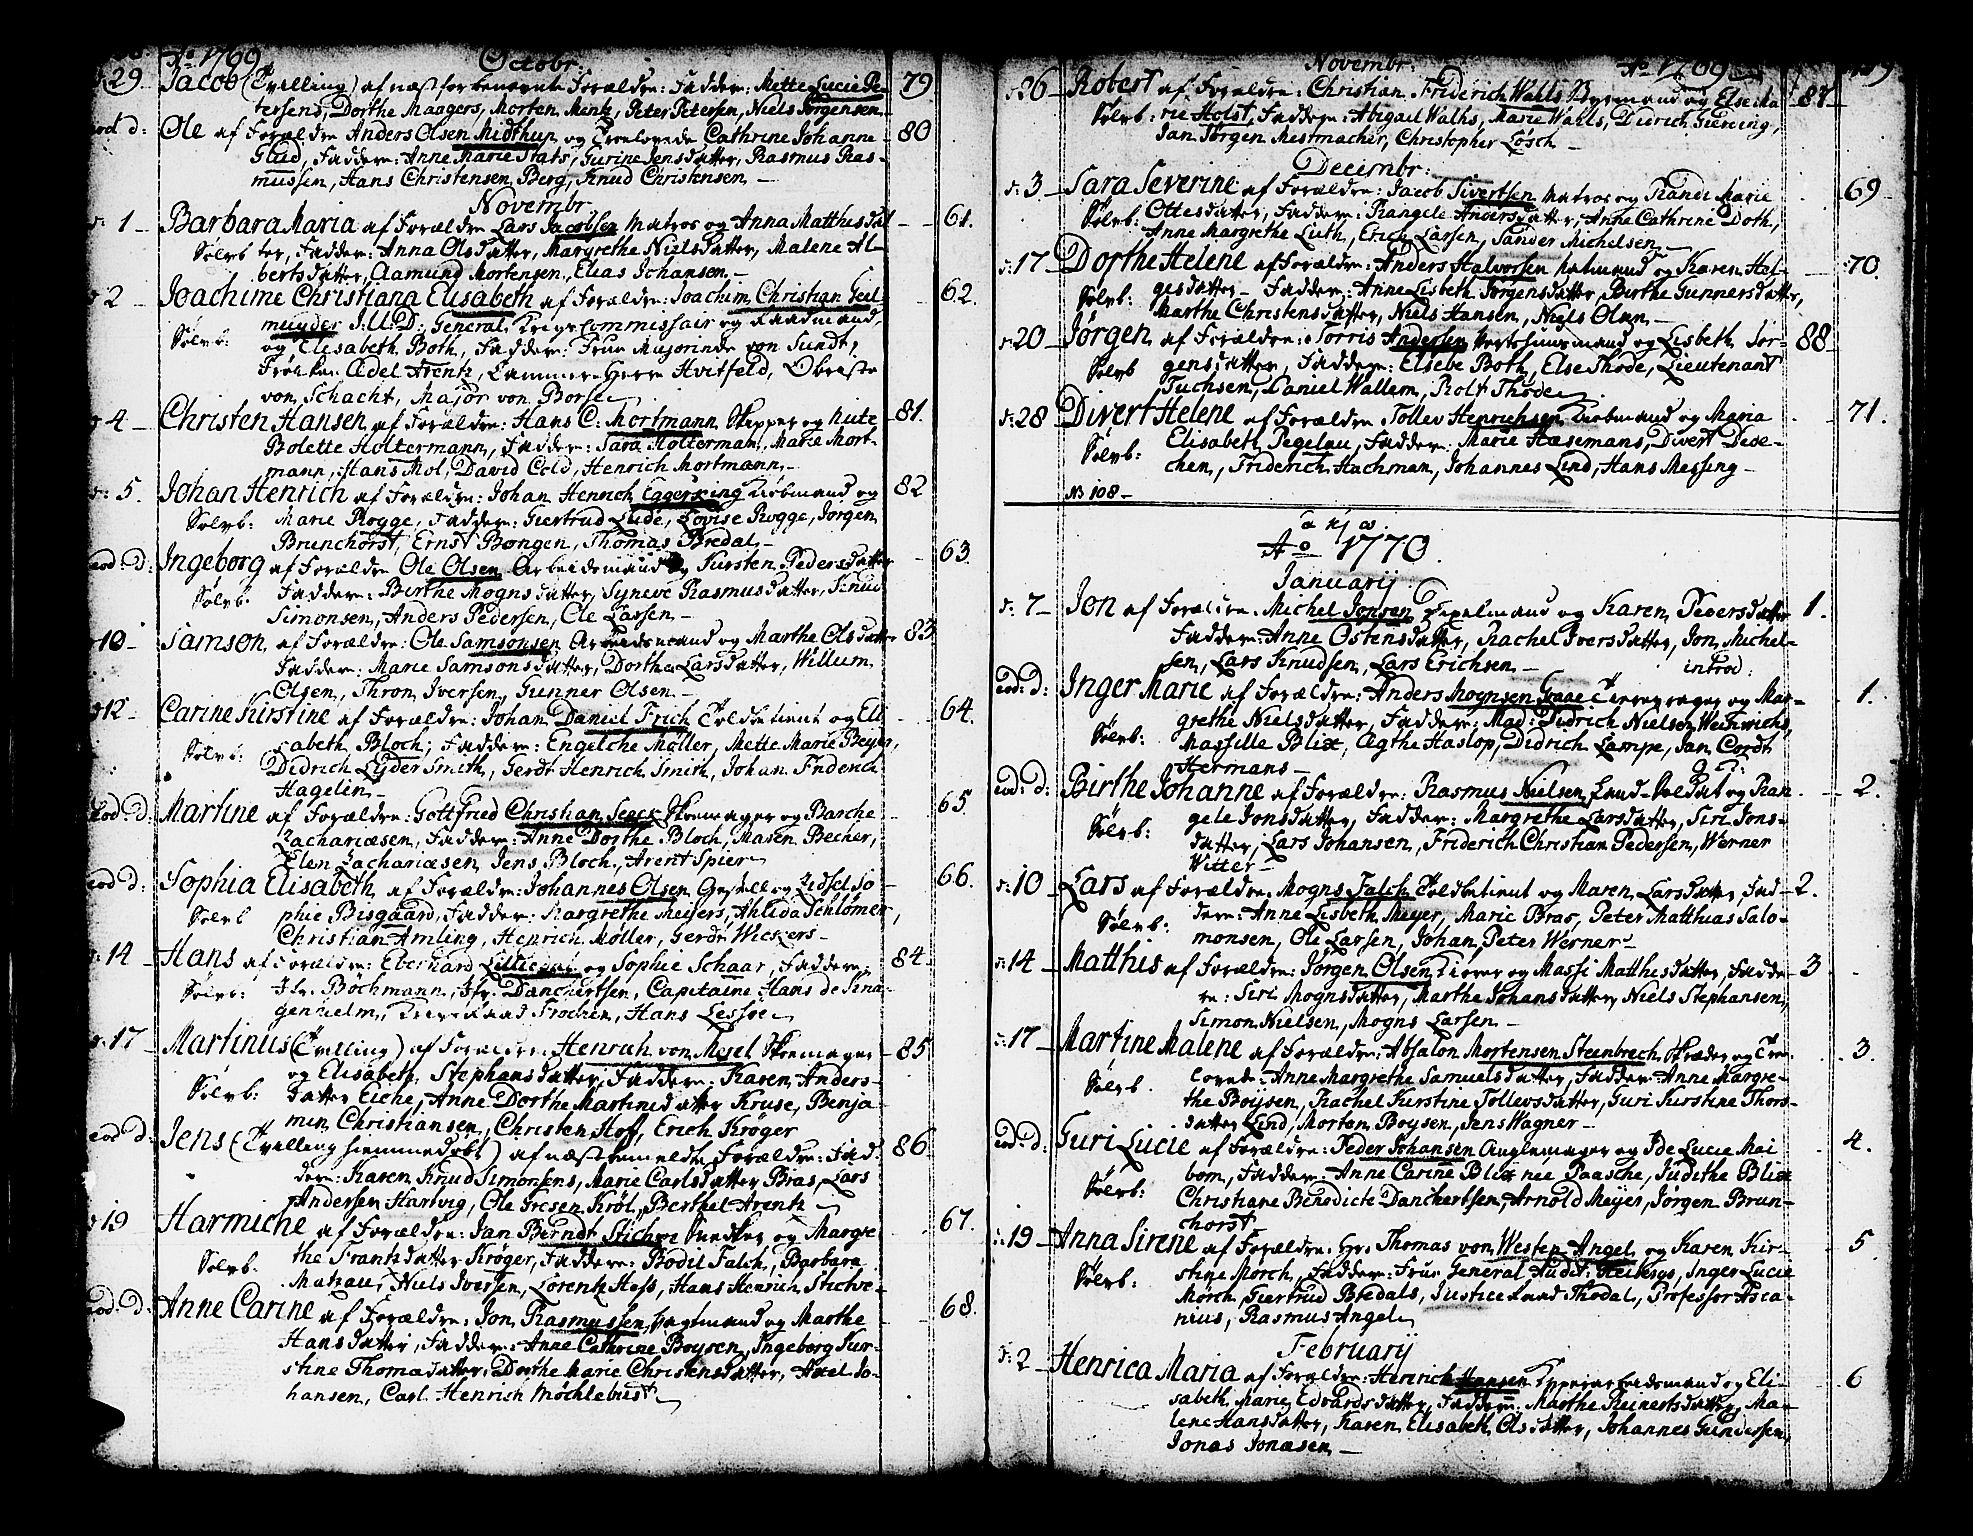 Ao 1769
Octobr:
29. Jacob (Tvilling) af næst forbenevnte Forældre: Faddere: Mette Lucie Pe- 79
tersens, Dorthe Maagers, Morten Mentz, Peter Petersen, Niels Jørgensen
eod d: Ole af Forældre Anders Olsen Midthun og Troelovede Cathrine Johanne 80
Glad, Faddere: Anne Marie Stats, Gurine Jensdatter, Rasmus Ras-
mussen, Hans Christensen Berg, Knud Christensen
Novembr.
1 Barbara Maria af Forældre Lars Jacobsen Matros og Anna Matthisdat 61.
Sølvb ter, Faddere: Anna Olsdatter, Margrethe Nielsdatter, Malene Al-
bertsdatter, Aamund Mortensen, Elias Johansen
2 Joachime Christiana Elisabeth af Forældre: Joachim Christian Geel- 62.
muyder J.U.D: General Krigs Commissair og Raadmand,
Sølvb: og Elisabeth Both, Faddere: Frue Majorinde von Sundt,
Frøiken Adel Arentz, Cammer-Herr Hvitfeld, Obriste
von Schacht, Major von Borse
4 Christen Hansen af Forældre: Hans C: Mortmann Skipper og 81.
Bolette Holtermann, Faddere: Sara Holterman, Marie Mort-
mann, Hans Mol, David Cold, Henrich Mortmann
5. Johan Henrich af Forældre: Johan Henrich Eggerking Kiøbmand og 82
Sølvb: Marie Rogge, Faddere: Giertrud Lude, Lovise Rogge, Jørgen
Brunchorst, Ernst Bongen, Thomas Bredal
eod. D: Ingeborg af Forældre Ole Olsen Arbeidsmand og Kirsten Pedersdatter 63.
Sølvb. Faddere: Birthe Mognsdatter, Syneve Rasmusdatter, Knud
Simonsen, Anders Pedersen, Ole Larsen
10 Samson af Forældre: Ole Samsonsen Arbeidsmand og Marthe Olsdatter 83
Faddere: Marie Samsonsdatter, Dorthe Larsdatter, Willum
Olsen, Thron Iversen, Gunner Olsen
12 Carine Kirstine af Forældre: Johan Daniel Frich Toldbetient og Eli 64.
Sølvb: sabeth Bloch; Faddere: Engelche Møller, Mette Marie Beyer,
Didrich Lyder Smith, Gerdt Henrich Smith, Johan Friderich
Hagelin
eod. D: Martine af Forældre: Gottfried Christian Senck Skomager og Barche 65
Zachariæsen, Faddere: Anne Dorthe Bloch, Maren Becher,
Elen Zachariæsen, Jens Bloch, Arent Spier
eod D: Sophia Elisabeth af Forældre: Johannes Olsen Gesell og Zidsel So 66.
Sølvb phie Bisgaard, Faddere: Margrethe Meijers, Ahlida Schlømer,
Christian Amling, Henrich Møller, Gerdt Wickers
14 Hans af Forældre: Eberhard og Sophie Schaar, Faddere 84
Sølvb: Jfr. Bochmann, Jfr. Danchertsen, Capitaine Hans de Sina-
genhelm, Krigs Raad Frochen, Hans Lessøe
17 Martinus (Tvilling) af Forældre: Henrich von Mesel Skomager 85
og Elisabeth Stephansdatter, Faddere: Karen Anders-
Sølvb: datter Eiche, Anne Dorthe Martinsdatter Kruse, Benja
min Christiansen, Christen Hof, Erich Krøger
eod D: Jens (Tvilling hiemmedøbt) af næstbemeldte Forældre: Fad 86.
dere: Karen Knud Simonsens, Marie Carlsdatter Bras, Lars
Andersen Hartvig, Ole Gresen Krøl, Berthel Arentz
19 Harmiche af Forældre: Jan Berndt Stichve Snedker og Margre 67.
Sølvb. the Frantzdatter Krøger, Faddere: Bodil Falch, Barbara
Matzau, Niels Iversen, Lorentz Hess, Hans Henrich Stichve
eod. D: Anne Carine af Forældre: Jon Rasmussen Hagtmand og Marthe 68.
Hansdatter, Faddere: Anne Cathrine Boysen, Ingeborg Kir-
stine Thomædatter, Dorthe Marie Christensdatter, Axel Jo-
hansen, Carl Henrich Möchlebust
Novembr: Ao 1769
26 Robert af Forældre: Christian Friderich Wahls Byemand og Elseda 87
Sølvb: rie Holst, Faddere: Abigail Walhs, Marie Wahls, Dierich Giering,
Jan Jørgen Mestmacher, Christopher Løsch
Decembr:
3 Sara Severine af Forældre: Jacob Sivertsen Matros og Randi Marie 69
Sølvb: Ottesdatter, Faddere: Rangele Andersdatter, Anna Cathrine Doth,
Anne Margrethe Luth, Erich Larsen, Sander Michelsen
17 Dorthe Helene af Forældre: Anders Halvorsen og Karen Hel- 70.
Sølvb: gesdatter Faddere: Anne Lisbeth Jørgensdatter, Birthe Gunnersdatter,
Marthe Christensdatter, Niels Hansen, Niels Olsen
20 Jørgen af Forældre: Torris Andersen Vertshuusmand og Lisbeth Jør- 88
Sølvb gensdatter, Faddere: Elsebe Both, Else Thode, Lieutenant
Fuchsen, Daniel Wallem, Rolf Thode
28 Divert Helene af Forældre: Tollev Henrichsen Kiøbmand og Maria 71.
Sølvb: Elisabeth Pegelau, Faddere: Marie Hasemans, Divert Deve-
chen, Friderich Hachman, Johannes Lind, Hans Messing
No 108
Ao 1770.
Januarij
7 Jon af Forældre: Michel Jonsen og Karen Pedersdatter 1.
Faddere: Anne Ostensdatter, Rachel Iversdatter, Jon Michel-
sen, Lars Knudsen, Lars Erichsen introd:
eod: d: Inger Marie af Forældre: Anders Mognsen Graae og Mar- 1.
Sølvb: grethe Nielsdatter, Faddere: Mad: Didrich Nielsen Weinwichs,
Massille Blix, Agthe Haslop, Didrich Lampe, Jan Cordt
Hermans
eod: d: Birthe Johanne af Forældre: Rasmus Nielsen Land-Soldat og Ran 2.
Sølvb: gele Jonsdatter, Faddere: Margrethe Larsdatter, Siri Jons-
datter, Lars Johansen, Friderich Christian Pedersen, Werner
Witter
10 Lars af Forældre: Mogns Falch Toldbetient og Maren Larsdatter, Fad 2.
Sølvb: dere: Anne Lisbeth Meyer, Marie Bras, Peter Matthias Salo-
monsen, Ole Larsen, Johan Peter Werner
14 Matthis af Forældre: Jørgen Olsen Kiører og Massi Matthisdatter, Fadde 3
re: Siri Mognsdatter, Marthe Johansdatter, Niels Stephansen,
Simon Nielsen, Mogns Larsen
17 Martine Malene af Forældre: Absalon Mortensen Steenbrech Skræder og Troe 3.
Sølvb. lovede: Anne Margrethe Samuelsdatter, Faddere Anne Margre-
the Boysen, Rachel Kirstine Tollevsdatter, Guri Kirstine Thors-
datter Lind, Morten Boysen, Jens Wagner
eod. d: Guri Lucie af Forældre: Peder Johansen Anglemager og Ide Lucie Mai 4.
Sølvb: bom, Faddere: Anne Carine Blix née Paasche, Judithe Blix
Christiane Benedicte Danchertsen, Arnold Meyer, Jørgen Brun-
chorst
19 Anna Sirene af Forældre: Hr. Thomas von Westen Angel og Karen Kir- 5
Sølvb: stine Morch, Faddere: Frue General Audit: Heiberg, Inger Lucie
Morch, Giertrud Bredals, Justice Raad Thodal, Professor Asca-
nius, Rasmus Angel
Februarij
2 Henrica Maria af Forældre: Henrich Hansen og Eli- 6
sabeth Marie Edvardsdatter, Faddere: Marthe Reinertsdatter, Ma-
lene Hansdatter, Karen Elisabeth Olsdatter, Johannes Gundersen,
Jonas Jonasen